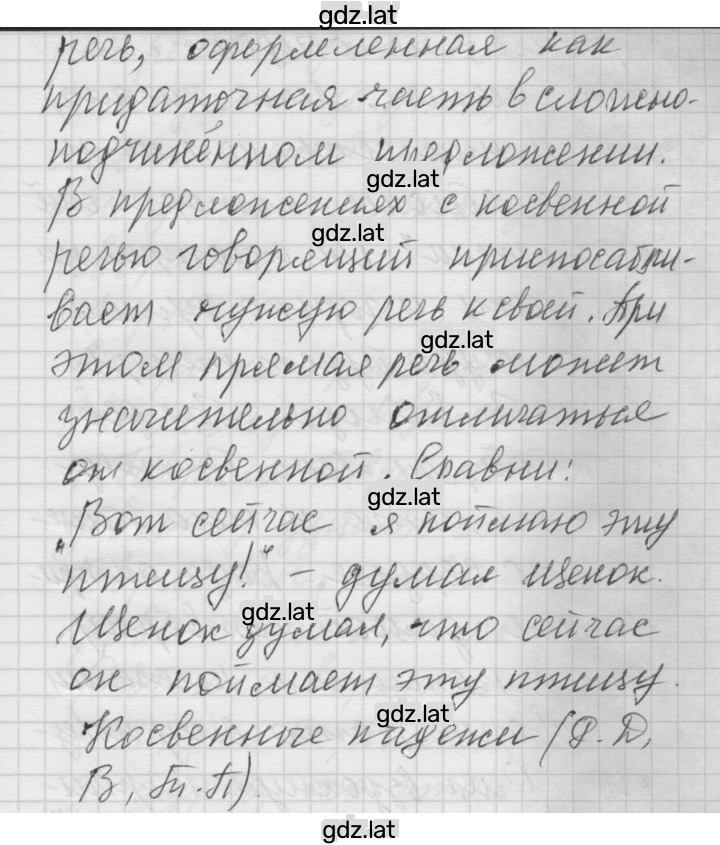 gdz.lat
речь, оформленная как
придаточная часть в сложно-
подчинённом предложении.
gdz.lat
В предложениях с косвенной
gdz.lat
речью говорящий приспосабли-
вает чужую речь к своей. При
gdz.lat
этом прямая речь может
значительно отличаться
от косвенной. Сравни:
gdz.lat
"Вот сейчас я поймаю эту
птицу!" - думал Щенок.
gdz.lat
Щенок думал, что сейчас
он поймает эту птицу.
gdz.lat
Косвенные падежи (Р. Д,
В, Тп. П).
gdz.lat